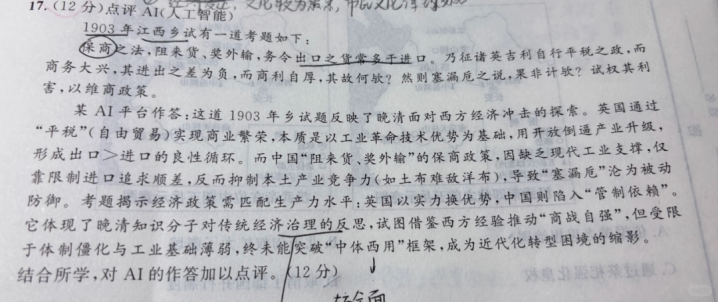 17.(12分)点评 AI(人工智能)
1903年江西乡试有一道考题如下:
保商之法,阻来货、奖外输,务令出口之货常多于进口。乃征诸英吉利自行平税之政,而
商务大兴,其进出之差为负,而商利自厚,其故何欤?然则塞漏卮之说,果非计欤?试权其利
害,以维商政策。
某AI平台作答:这道1903年乡试题反映了晚清面对西方经济冲击的探索。英国通过
“平税”(自由贸易)实现商业繁荣,本质是以工业革命技术优势为基础,用开放倒逼产业升级,
形成出口>进口的良性循环。而中国“阻来货、奖外输”的保商政策,因缺乏现代工业支撑,仅
靠限制进口追求顺差,反而抑制本土产业竞争力(如土布难敌洋布),导致“塞漏卮”沦为被动
防御。考题揭示经济政策需匹配生产力水平:英国以实力换优势,中国则陷入“管制依赖”。
它体现了晚清知识分子对传统经济治理的反思,试图借鉴西方经验推动“商战自强”,但受限
于体制僵化与工业基础薄弱,终未能突破“中体西用”框架,成为近代化转型困境的缩影。
结合所学,对AI的作答加以点评。(12分)